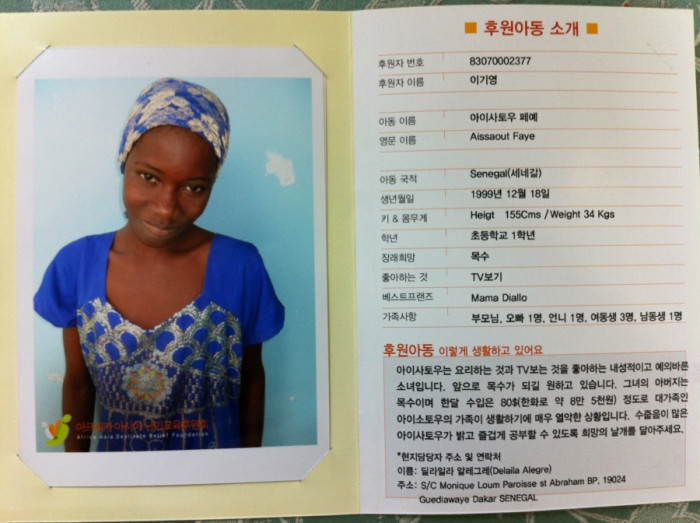 아프리카아시아난민교육후원회
Africa Asia Destitute Relief Foundation
■ 후원아동 소개 ■
후원자 번호 83070002377
후원자 이름 이기영
아동 이름 아이사토우 페예
영문 이름 Aissaout Faye
아동 국적 Senegal(세네갈)
생년월일 1999년 12월 18일
키 & 몸무게 Heigt 155Cms / Weight 34 Kgs
학년 초등학교 1학년
장래희망 목수
좋아하는 것 TV보기
베스트프랜즈 Mama Diallo
가족사항 부모님, 오빠 1명, 언니 1명, 여동생 3명, 남동생 1명
후원아동 이렇게 생활하고 있어요
아이사토우는 요리하는 것과 TV보는 것을 좋아하는 내성적이고 예의바른
소녀입니다. 앞으로 목수가 되길 원하고 있습니다. 그녀의 아버지는
목수이며 한달 수입은 80$(한화로 약 8만 5천원) 정도로 대가족인
아이소토우의 가족이 생활하기에 매우 열악한 상황입니다. 수줍음이 많은
아이사토우가 밝고 즐겁게 공부할 수 있도록 희망의 날개를 달아주세요.
*현지담당자 주소 및 연락처
이름: 딜라일라 알레그레(Delaila Alegre)
주소: S/C Monique Loum Paroisse st Abraham BP, 19024
Guediawaye Dakar SENEGAL